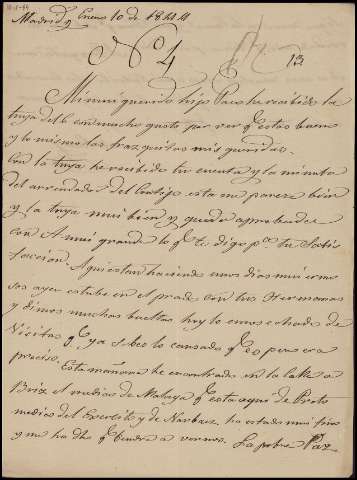 Madrid y Enero 10 de 1844
Nº 4
13
Mi mui querido hijo Paco he recibido la
tuya del 6 con mucho gusto por ver qe estas bueno
y lo mismo las
mis queridas.
Con la tuya he recibido tu cuenta y la minuta
del arrendado del Cortijo esta me parece bien
y la tuya mui bien y queda aprobada
con A mui grande lo qe te digo pa tu satis
faccion.
Aqui estan haciendo unos dias mui ermo
sos ayer estube en el prado con tus Hermanas
y dimos muchas bueltas hoy lo emos echado de
Vicitas qe ya sabes lo cansado qe es pero era
preciso.
Esta mañana he encontrado en la calle a
Briz el medico de Malaga qe esta aqui de Proto
medico del Exercito y de Narbaez ha estado mui fino
y me ha dho qe bendra a vernos. La pobre Paz